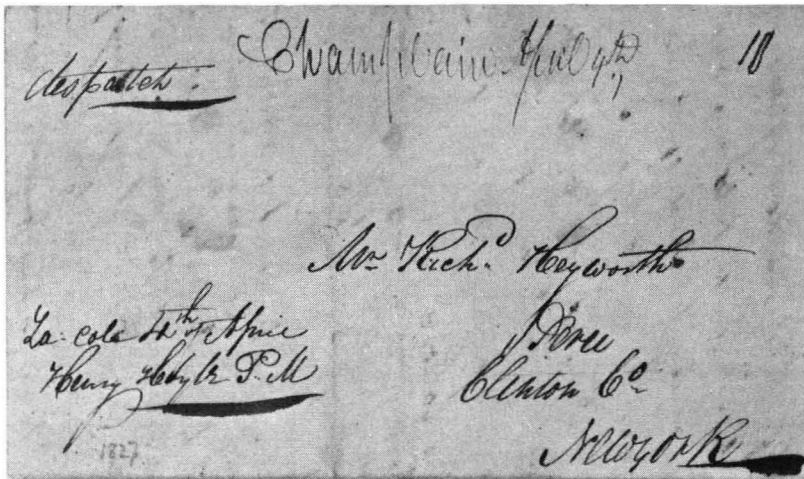 Champlain April 9th 10
despatch
Mr Richd. Heyworth
Peru
Clinton Co.
New york
La-cole 4th April
Henry Hoyle P.M
1827